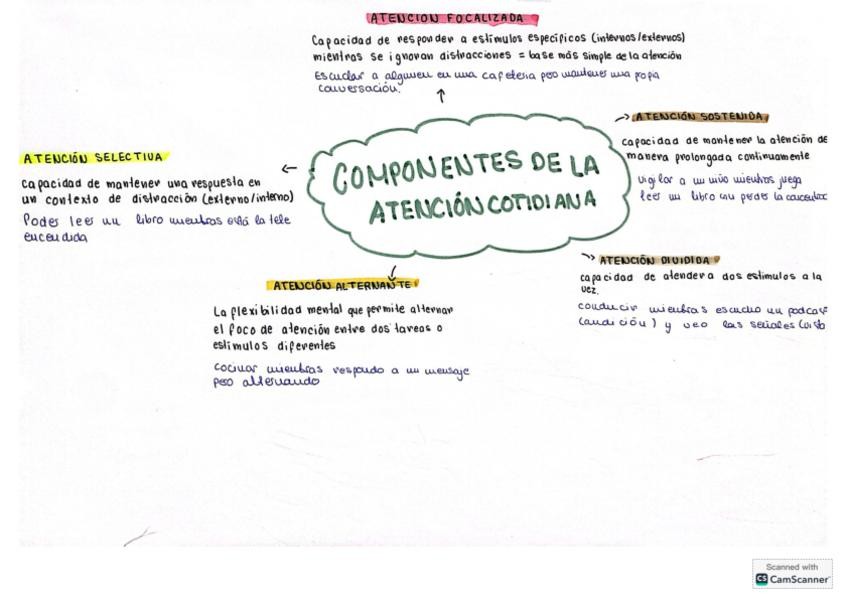 ATENCIÓN FOCALIZADA
Capacidad de responder a estímulos específicos (internos/externos)
mientras se ignoran distracciones = base más simple de la atención
Escuchar a alguien en una cafetería pero mantener una propa
conversación.
ATENCIÓN SOSTENIDA
capacidad de mantener la atención de
manera prolongada continuamente
vigilar a un niño mientras juega
leer un libro sin perder la
ATENCIÓN SELECTIVA
capacidad de mantener una respuesta en
un contexto de distracción (externo/interno)
Poder leer un libro mientras está la tele
encendida
COMPONENTES DE LA
ATENCIÓN COTIDIANA
ATENCIÓN DIVIDIDA
capacidad de atender a dos estímulos a la
vez.
conducir mientras escucho un podcast
(audición) y veo las señales
ATENCIÓN ALTERNANTE
La flexibilidad mental que permite alternar
el foco de atención entre dos tareas o
estímulos diferentes
cocinar mientras respondo a un mensaje
pero alternando
Scanned with
CS CamScanner